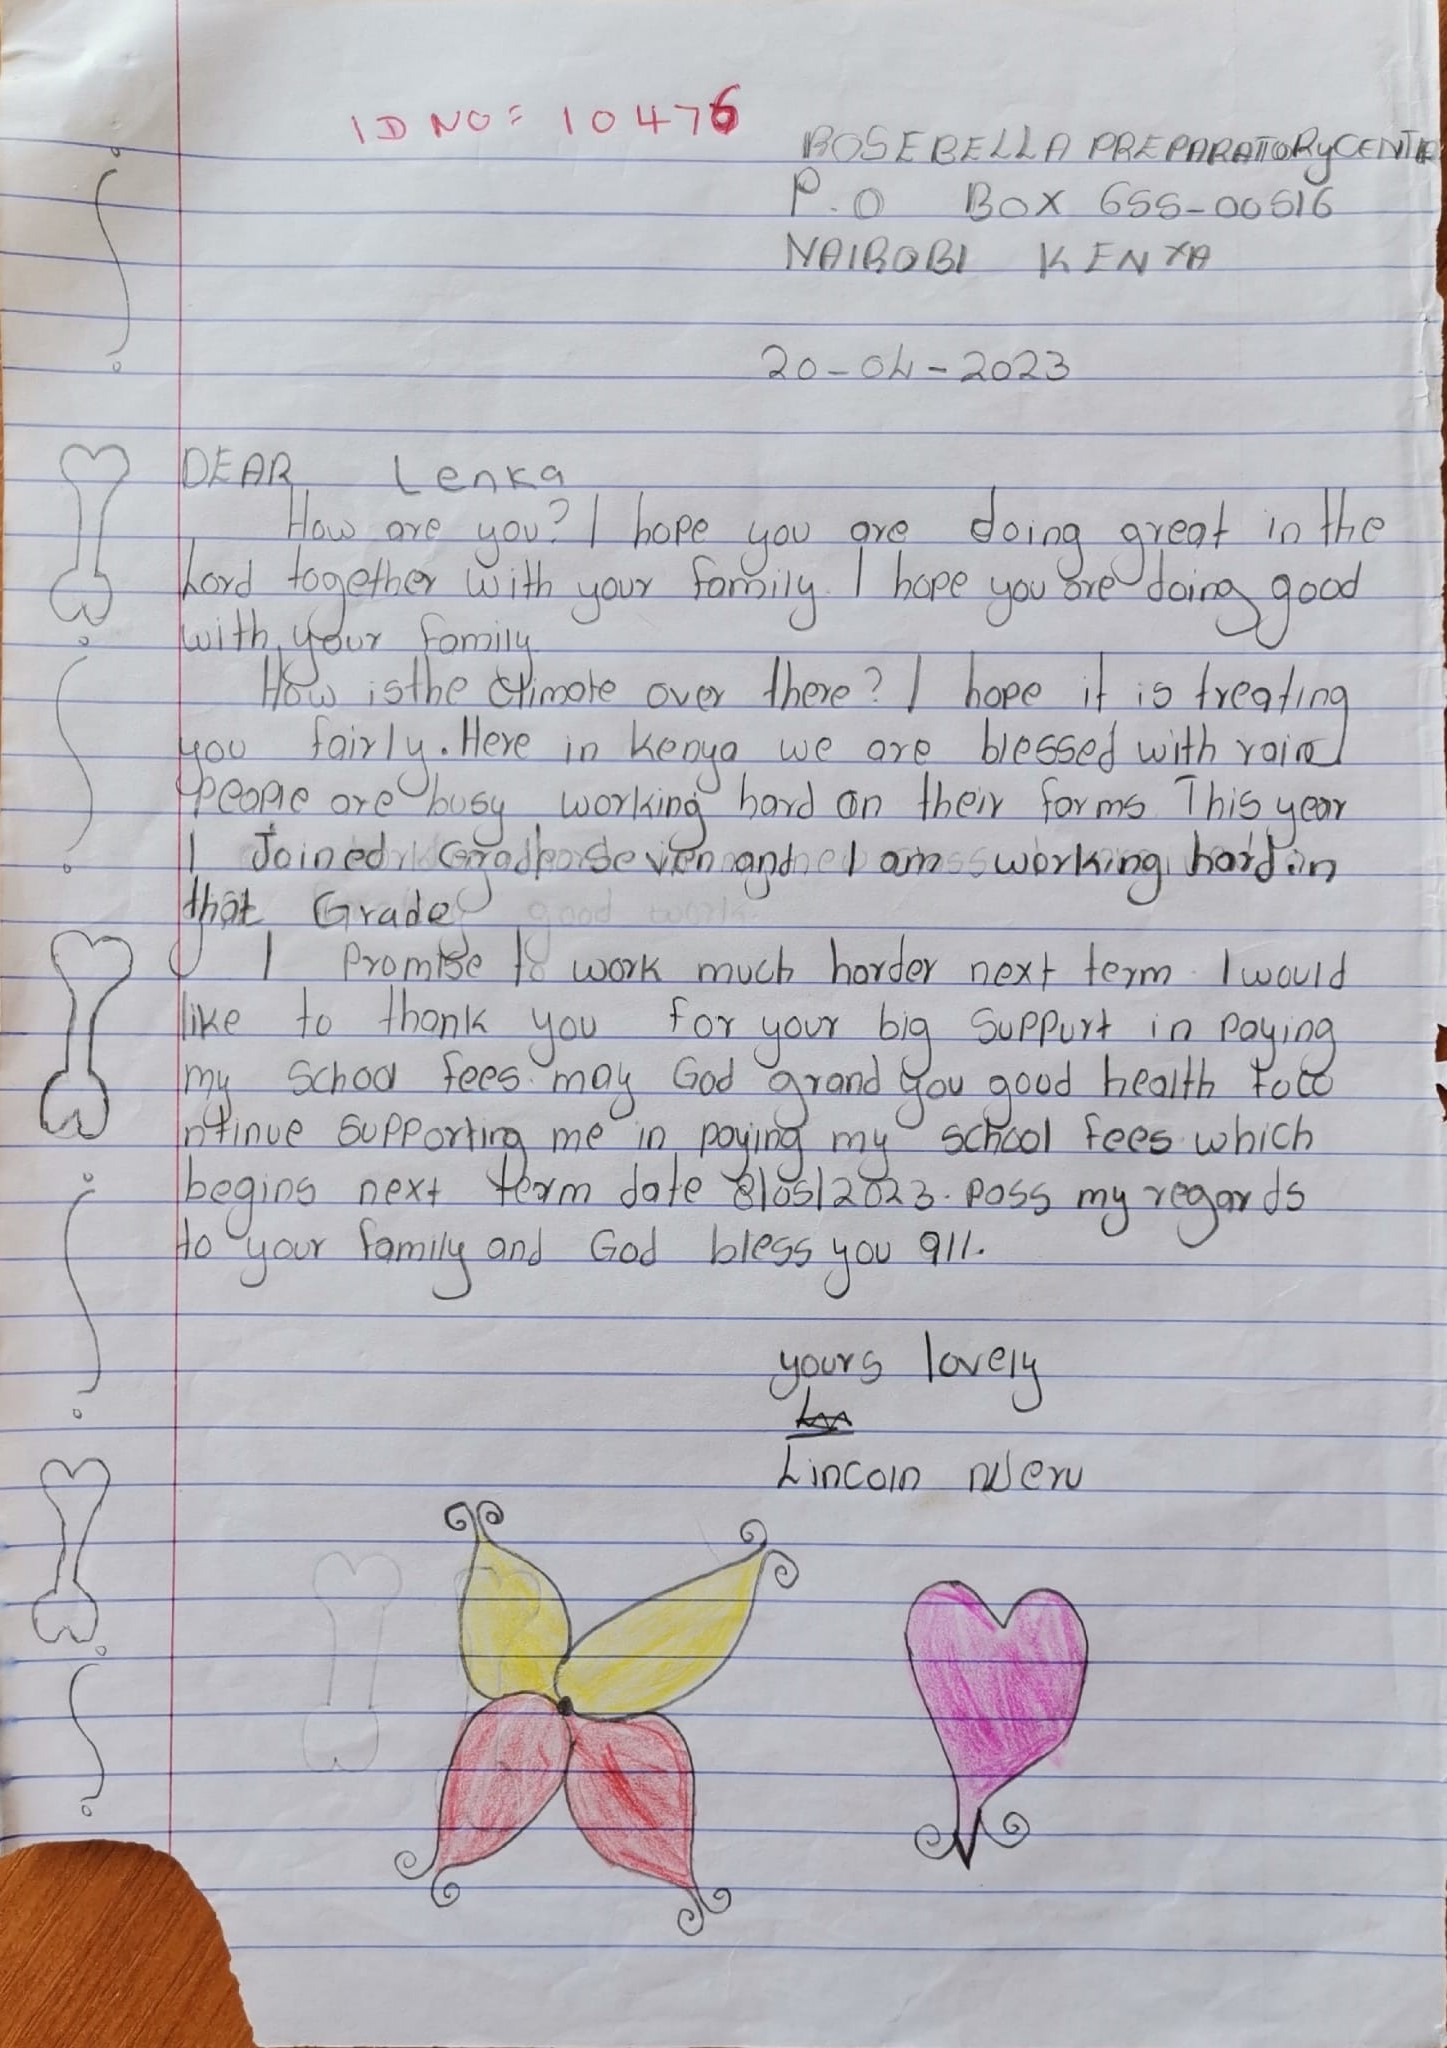 ID NO = 10476
ROSEBELLA PREPARATORY CENTR
P.O BOX 655-00516
NAIROBI KENYA
20-04-2023
DEAR Lenka
How are you? I hope you are doing great in the
Lord together with your family. I hope you are doing good
with your family
How is the climate over there? I hope it is treating
you fairly. Here in Kenya we are blessed with rain
People are busy working hard on their farms This year
I Joined Grade Seven and I am working hard in
that Grade
I Promise to work much harder next term. I would
like to thank you for your big support in paying
my school fees. may God grand you good health to co
ntinue supporting me in paying my school fees which
begins next term date 8/05/2023. pass my regards
to your family and God bless you all.
yours lovely
Lincoln Nderu